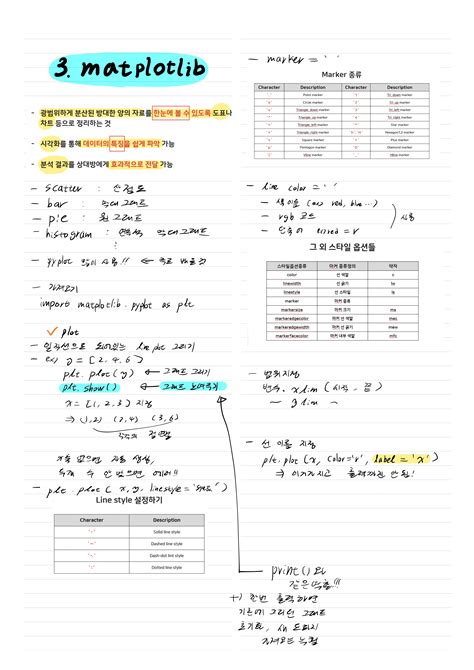 3. matplotlib
- 광범위하게 분산된 방대한 양의 자료를 한눈에 볼 수 있도록 도표나
차트 등으로 정리하는 것
- 시각화를 통해 데이터의 특징을 쉽게 파악 가능
- 분석 결과를 상대방에게 효과적으로 전달 가능
- scatter : 산점도
- bar : 막대그래프
- pie : 원그래프
- histogram : 연속적 막대그래프
- pyplot 많이 사용!!
- 가져오기
import matplotlib.pyplot as plt
✓ plot
- 일직선으로 되어있는 line plot 그리기
- ex) y = [2, 4, 6]
plt.plot(y) ← 그래프 그리기
plt.show() ← 그래프 보여주기
x = [1, 2, 3] 지정
⇒ (1,2) (2,4) (3,6)
각각의 점 연결
개수 안 맞으면 에러!!
- plt.plot(x, y, linestyle='
Line style 설정하기
Character Description
'-' Solid line style
'--' Dashed line style
'-.' Dash-dot lint style
':' Dotted line style
- marker = ' '
Marker 종류
Character Description Character Description
Point marker Tri_down marker
'o' Circle marker Tri_up marker
Triangle_down marker Tri_left marker
Triangle_up marker Tri_right marker
Triangle_left marker Star marker
Triangle_right marker Hexagon1,2 marker
Square marker Plus marker
Pentagon marker Diamond marker
Vline marker
- line color = ' '
- 색이름 (ex) red, blue ...)
- rgb 코드
사용
- 단축어 ex) red = r
그 외 스타일 옵션들
스타일옵션종류 마커 종류정의 약자
color 선 색깔 c
linewidth 선 굵기 lw
linestyle 선 스타일 ls
marker 마커 종류
markersize 마커 크기 ms
markeredgecolor 마커 선 색깔 mec
markeredgewidth 마커 선 굵기 mew
markerfacecolor 마커 내부 색깔 mfc
- 범위지정
변수.xlim(시작, 끝)
- ylim
- 선 이름 지정
plt.plot(x, color='r', label='x')
⇒ 여기까지는 출력까진 안됨!
print()와
같은 역할!!!
+) 한번 출력하면
기존에 그리던 그래프
초기화, 새 도화지
가져오는 느낌